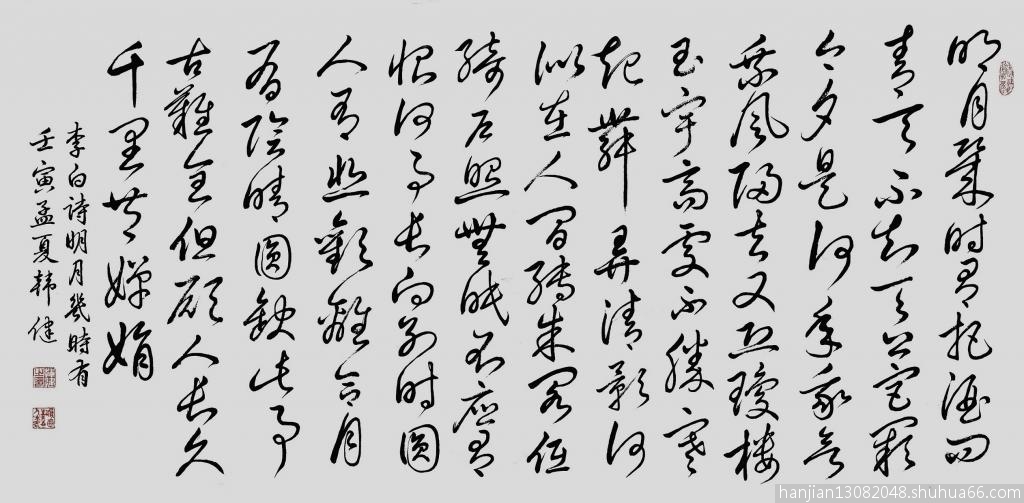 明月幾時有把酒問
青天不知天上宮闕
今夕是何年我欲
乘風歸去又恐瓊樓
玉宇高處不勝寒
起舞弄清影何
似在人間轉朱閣低
綺户照無眠不應有
恨何事長向別時圓
人有悲歡離合月
有陰晴圓缺此事
古難全但願人長久
千里共嬋娟
李白詩明月幾時有
壬寅孟夏韩健
hanjian13082048.shuhua66.com